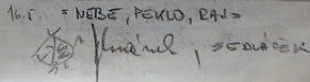 16.5. = NEBE, PEKLO, RÁJ =
, SEDLÁČEK